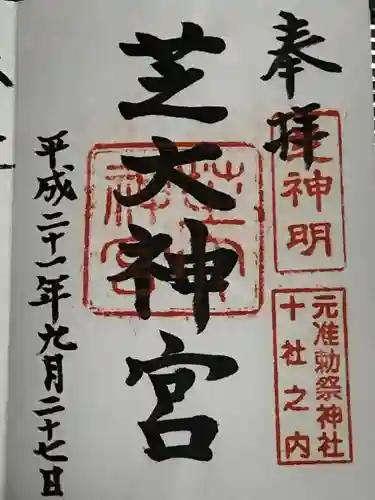 奉拝
芝神明
元准勅祭神社
十社之内
芝大神宮
芝大神宮
平成二十一年九月二十七日